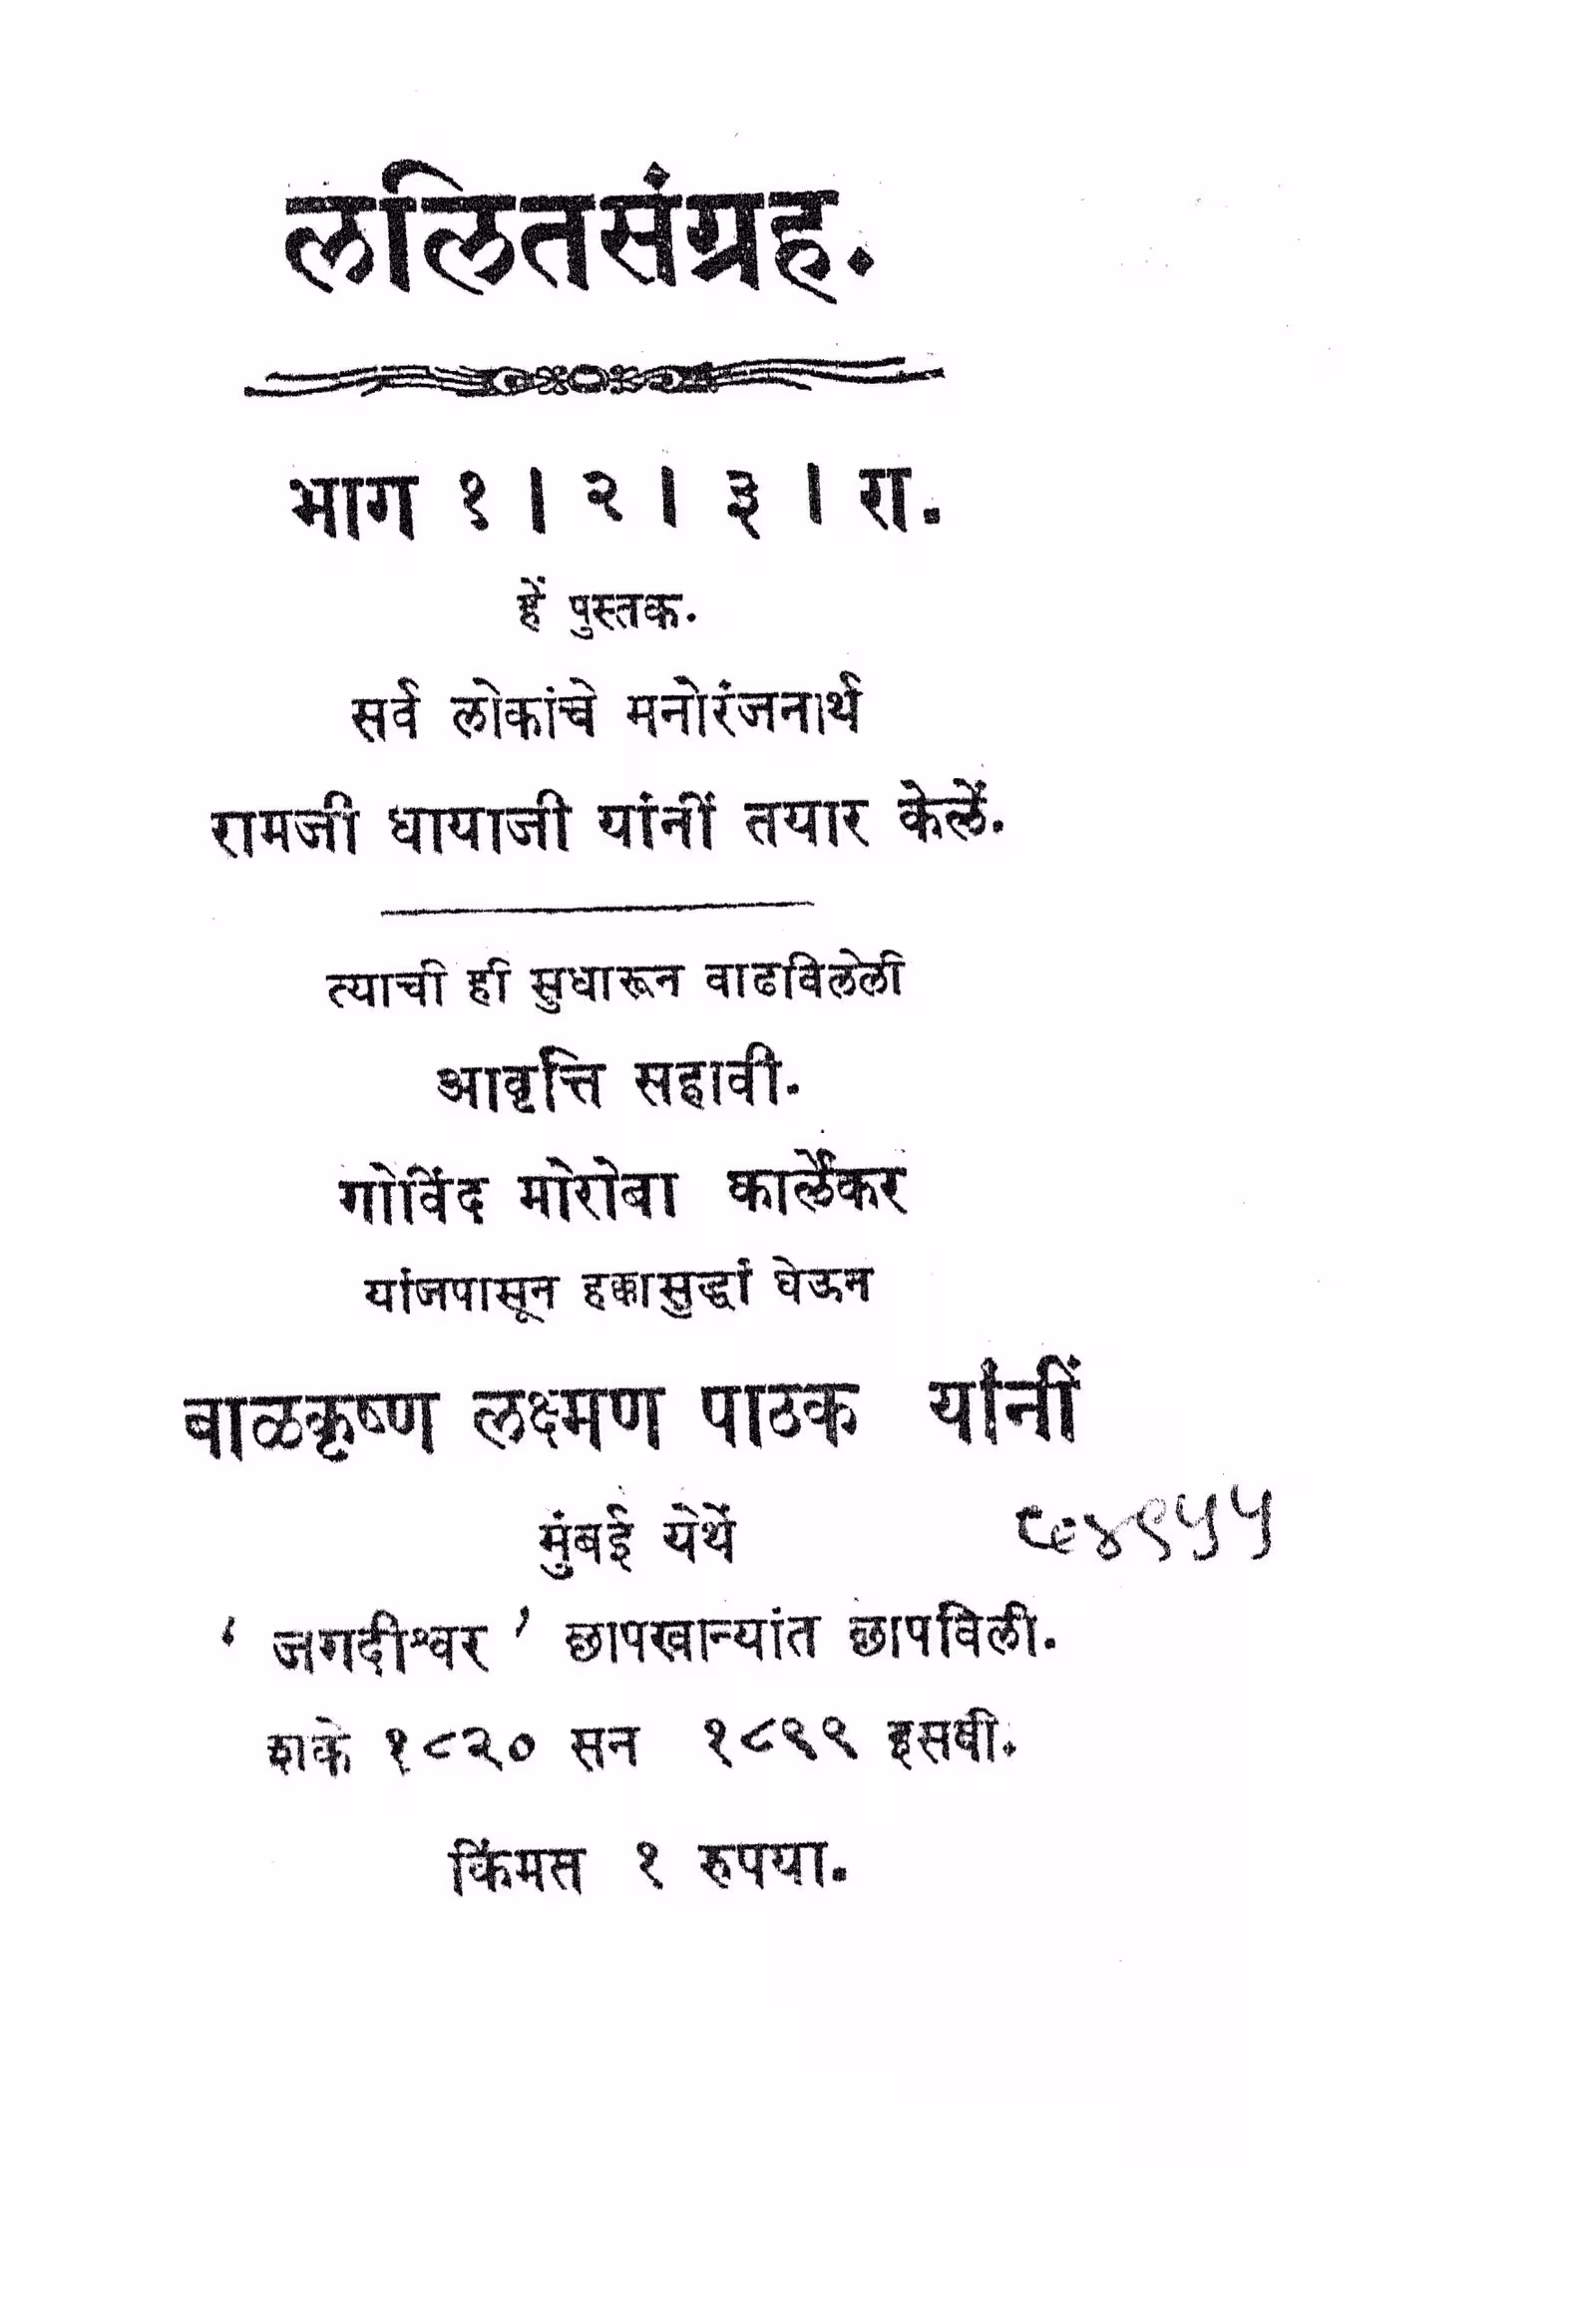 ललितसंग्रह.
भाग १ । २ । ३ । रा.
हें पुस्तक.
सर्व लोकांचे मनोरंजनार्थ
रामजी धायाजी यांनीं तयार केलें.
त्याची ही सुधारून वाढविलेली
आवृत्ति सहावी.
गोविंद मोरोबा कार्लेकर
यांजपासून हक्कासुद्धां घेऊन
बाळकृष्ण लक्ष्मण पाठक यांनीं
मुंबई येथें
‘ जगदीश्वर ’ छापखान्यांत छापविली.
शके १८२० सन १८९९ इसवी.
किंमत १ रुपया.